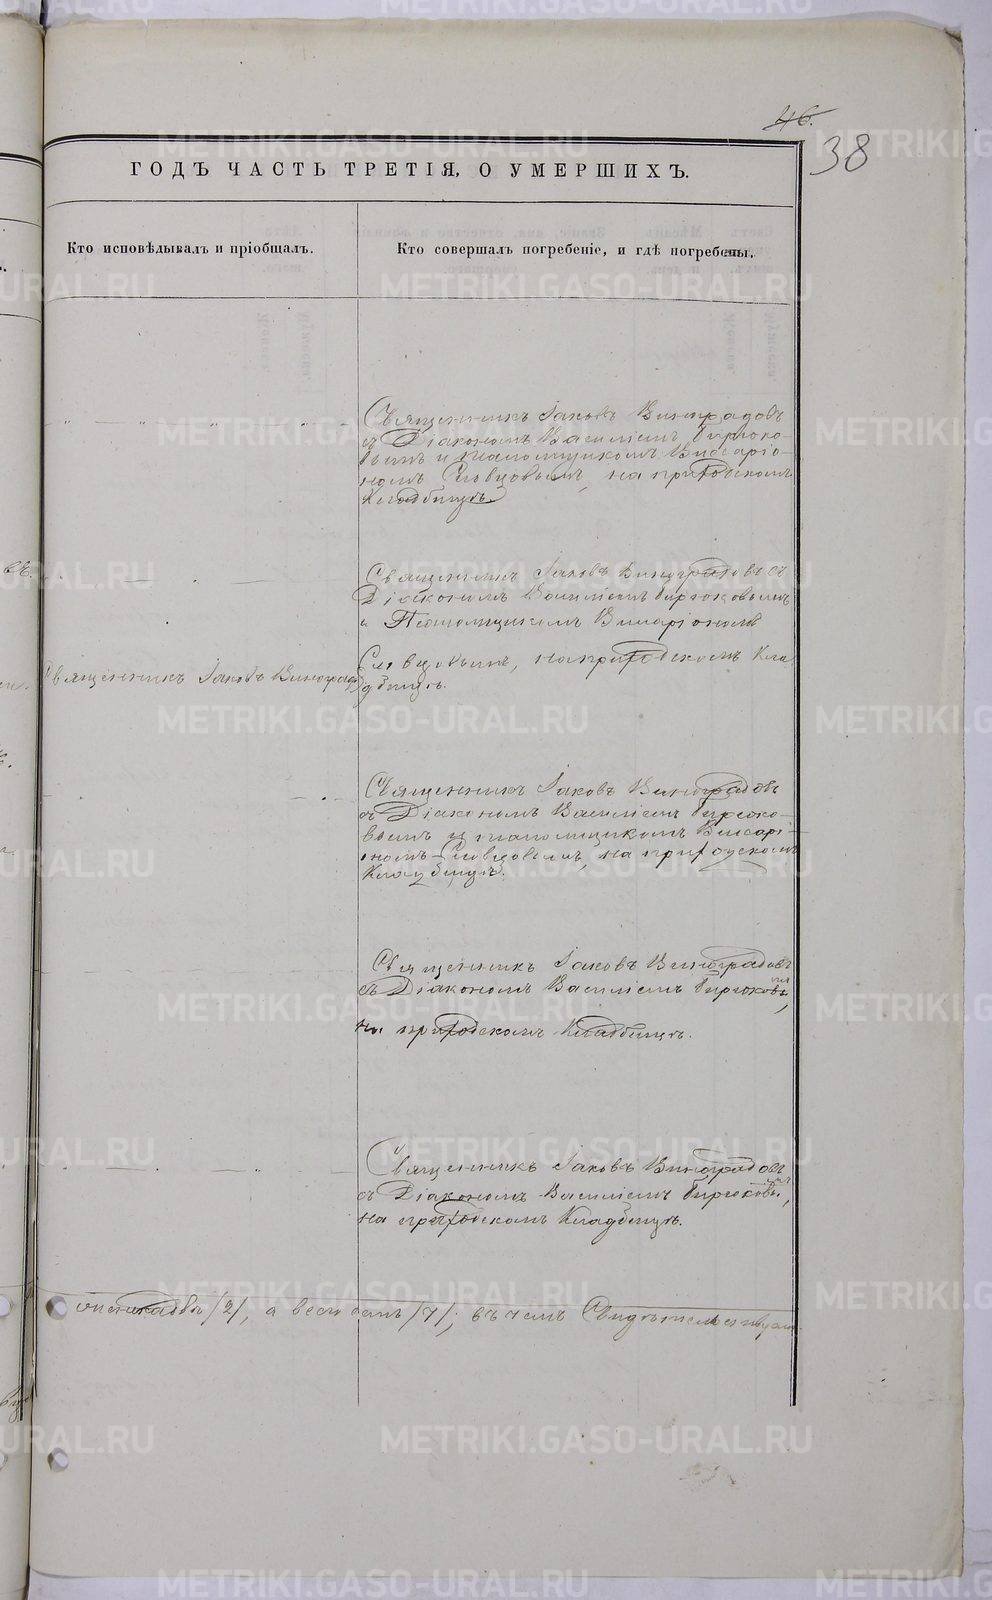 46.
38
ГОДЪ ЧАСТЬ ТРЕТІЯ, О УМЕРШИХЪ.
Кто исповѣдывалъ и пріобщалъ.
Кто совершалъ погребеніе, и гдѣ погребены.
Священникъ Іаковъ Виноградовъ
съ Діакономъ Василіемъ Бирюко-
вымъ и псаломщикомъ Виссаріо-
номъ Словцовымъ, на приходскомъ
Кладбищѣ.
Священникъ Іаковъ Виноградовъ съ
Діакономъ Василіемъ Бирюковымъ
и Псаломщикомъ Висаріономъ
Словцовымъ, на приходскомъ Кла-
дбищѣ.
Священникъ Іаковъ Виноградо
Священникъ Іаковъ Виноградовъ
съ Діакономъ Василіемъ Бирюко-
вымъ и псаломщикомъ Висарі-
ономъ Словцовымъ, на приходскомъ
Кладбищѣ.
Священникъ Іаковъ Виноградовъ
съ Діакономъ Василіемъ Бирюковымъ,
на приходскомъ Кладбищѣ.
Священникъ Іаковъ Виноградовъ
съ Діакономъ Василіемъ Бирюковымъ,
на приходскомъ Кладбищѣ.
/2/, а всего семь /7/; въ чемъ Свидѣтельствуемъ
METRIKI.GASO-URAL.RU